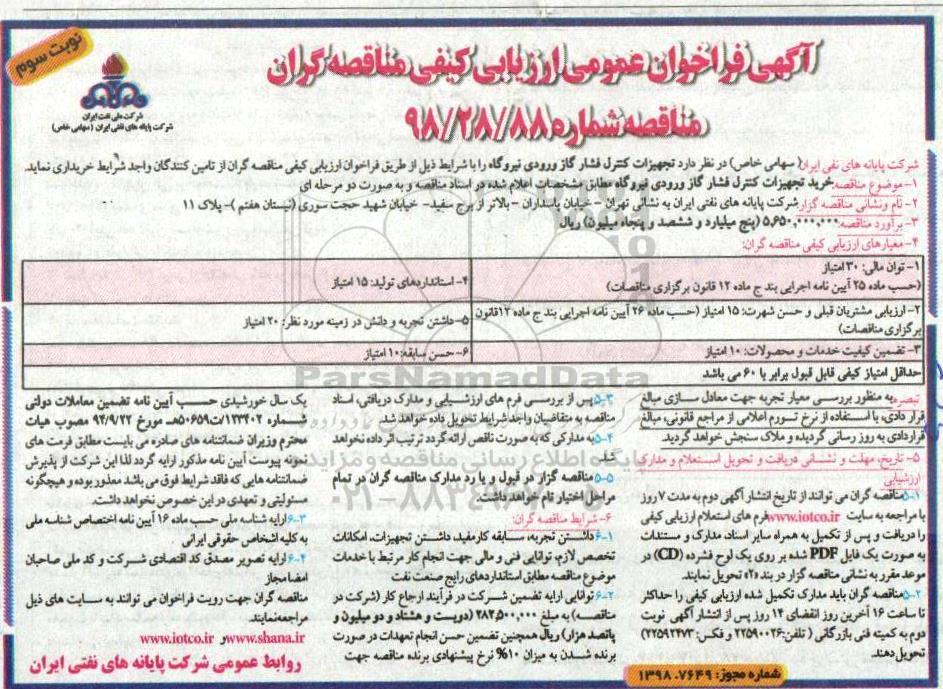 نوبت سوم
آگهی فراخوان عمومی ارزیابی کیفی مناقصه گران
مناقصه شماره ۹۸/۲۸/۸۸
شرکت ملی نفت ایران
شرکت پایانه های نفتی ایران (سهامی خاص)
شرکت پایانه های نفتی ایران( سهامی خاص) در نظر دارد تجهیزات کنترل فشار گاز ورودی نیروگاه را با شرایط ذیل از طریق فراخوان ارزیابی کیفی مناقصه گران از تامین کنندگان واجد شرایط خریداری نماید.
۱- موضوع مناقصه: خرید تجهیزات کنترل فشار گاز ورودی نیروگاه مطابق مشخصات اعلام شده در اسناد مناقصه و به صورت دو مرحله ای
۲- نام ونشانی مناقصه گزار: شرکت پایانه های نفتی ایران به نشانی تهران - خیابان پاسداران - بالاتر از برج سفید- خیابان شهید حجت سوری (نیستان هفتم )- پلاک ۱۱
۳- برآورد مناقصه: ۵,۶۵۰,۰۰۰,۰۰۰ (پنج میلیارد و ششصد و پنجاه میلیون) ریال
۴- معیارهای ارزیابی کیفی مناقصه گران:
۱- توان مالی: ۳۰ امتیاز
(حسب ماده ۲۵ آیین نامه اجرایی بند ج ماده ۱۲ قانون برگزاری مناقصات)
۴- استانداردهای تولید: ۱۵ امتیاز
۲- ارزیابی مشتریان قبلی و حسن شهرت: ۱۵ امتیاز (حسب ماده ۲۶ آیین نامه اجرایی بند ج ماده ۱۲قانون
برگزاری مناقصات)
۵- داشتن تجربه و دانش در زمینه مورد نظر: ۲۰ امتیاز
۳- تضمین کیفیت خدمات و محصولات: ۱۰ امتیاز
۶- حسن سابقه: ۱۰ امتیاز
حداقل امتیاز کیفی قابل قبول برابر با ۶۰ می باشد
تبصره: به منظور بررسی معیار تجربه جهت معادل سازی مبالغ
قرار دادی، با استفاده از نرخ تسورم اعلامی از مراجع قانونی، مبالغ
قراردادی به روز رسانی گردیده و ملاک سنجش خواهد گردید.
۵- تاریخ، مهلت و نشانی دریافت و تحویل استعلام و مدارک
ارزشیابی
۵-۱ مناقصه گران می توانند از تاریخ انتشار آگهی دوم به مدت ۷ روز
با مراجعه به سایت www.iotco.ir فرم های استعلام ارزیابی کیفی
را دریافت و پس از تکمیل به همراه سایر اسناد مدارک و مستندات
به صورت یک فایل PDF شده بر روی یک لوح فشرده (CD) در
موعد مقرر به نشانی مناقصه گزار در بند «۲» تحویل نمایند.
۵-۲ مناقصه گران باید مدارک تکمیل شده ارزیابی کیفی را حداکثر
تا ساعت ۱۶ آخرین روز انقضای ۱۴ روز پس از انتشار آگهی نوبت
دوم به کمیته فنی بازرگانی ( تلفن: ۲۲۵۹۰۰۲۶ و فکس: ۲۲۵۹۲۴۷۳)
تحویل دهند.
۵-۳ پس از بررسی فرم های ارزشیابی و مدارک دریافتی، اسناد
مناقصه به متقاضیان واجد شرایط تحویل داده خواهد شد.
۵-۴ به مدارکی که به صورت ناقص ارائه گردد ترتیب اثر داده نخواهد
شد.
۵-۵ مناقصه گزار در قبول و یا رد مدارک مناقصه گران در تمام
مراحل اختیار تام خواهد داشت.
۶- شرایط مناقصه گران:
۶-۱ داشتن تجربه، سابقه کار مفید، داشتن تجهیزات، امکانات
تخصص لازم، توانایی فنی و مالی جهت انجام کار مرتبط با خدمات
موضوع مناقصه مطابق استانداردهای رایج صنعت نفت
۶-۲ توانایی ارایه تضمین شرکت در فرآیند ارجاع کار (شرکت در
مناقصه) به مبلغ ۲۸۲,۵۰۰,۰۰۰ (دویست و هشتاد و دو میلیون و
پانصد هزار) ریال همچنین تضمین حسن انجام تعهدات در صورت
برنده شدن به میزان ۱۰% نرخ پیشنهادی برنده مناقصه جهت
یک سال خورشیدی حسب آیین نامه تضمین معاملات دولتی
شماره ۱۲۳۴۰۲/ت۵۰۶۵۹هـ مورخ ۹۴/۹/۲۲ مصوب هیات
محترم وزیران ضمانتنامه های صادره می بایست مطابق فرمت های
نمونه پیوست آیین نامه مذکور ارایه گردد لذا این شرکت از پذیرش
ضمانتنامه هایی که فاقد شرایط فوق می باشد معذور بوده و هیچگونه
مسئولیتی و تعهدی در این خصوص نخواهد داشت.
۶-۳ ارایه شناسه ملی حسب ماده ۱۶ آیین نامه اختصاص شناسه ملی
به کلیه اشخاص حقوقی ایرانی
۶-۴ ارایه تصویر مصدق کد اقتصادی شرکت و کد ملی صاحبان
امضا مجاز
مناقصه گران جهت رویت فراخوان می توانند به سایت های ذیل
مراجعه نمایند.
www.iotco.ir و www.shana.ir
روابط عمومی شرکت پایانه های نفتی ایران
شماره مجوز: ۷۶۴۹. ۱۳۹۸
ParsNamadData
پایگاه اطلاع رسانی مناقصه و مزایده